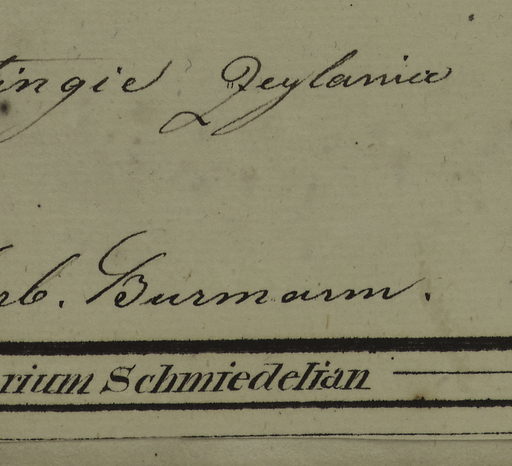 ingie Zeylanica
rb. Burmann.
rium Schmiedelian